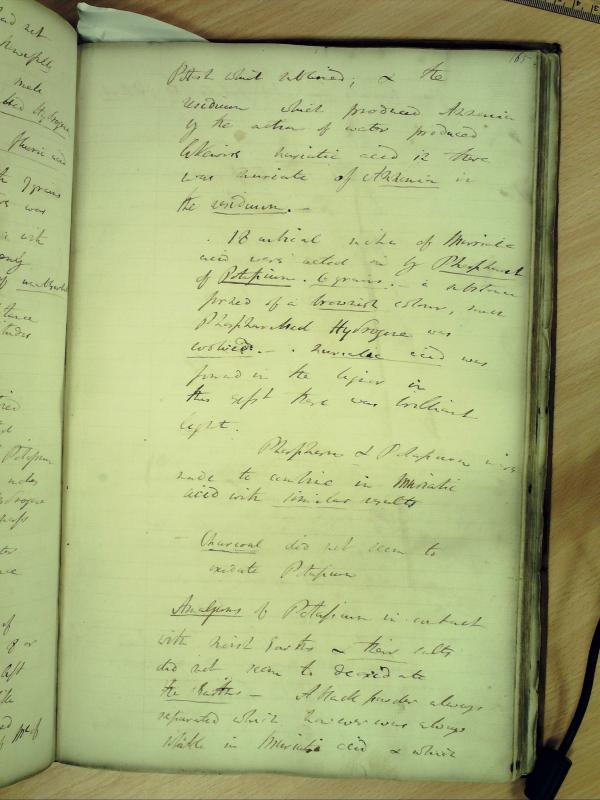 165
Potash which sublimed; & the
residuum which produced Ammonia
by the action of water produced
likewise muriatic acid ie there
was muriate of Ammonia in
the residuum. —
18 cubical inches of Muriatic
acid were acted on by Phosphuret
of Potassium. 6 grains. — a substance
formed of a brownish colour, some
Phosphuretted Hydrogene was
evolved. — . muriatic acid was
found in the liquor in
this expt there was brilliant
light.
Phosphorus & Potassium were
made to combine in Muriatic
acid with similar results
Charcoal did not seem to
oxidate Potassium
Amalgams of Potassium in contact
with moist Earths & their salts
did not seem to deoxidate
the Earths — A black powder always
separated which however was always
soluble in Muriatic acid & which